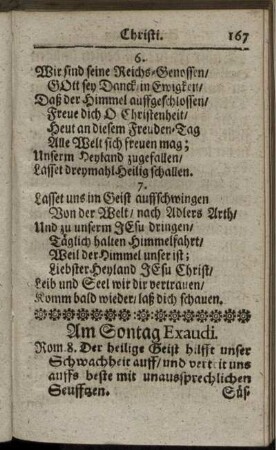 Christi. 167
6.
Wir sind seine Reichs-Genossen/
GOtt sey Danck, in Ewigken/
Daß der Himmel auffgeschlossen/
Freue dich O Christenheit/
Heut an diesem Freuden-Tag
Alle Welt sich freuen mag;
Unserm Heyland zugefallen/
Lasset dreymahl Heilig schallen.
7.
Lasset uns im Geist auffschwingen
Von der Welt/ nach Adlers Arth/
Und zu unserm JEsu dringen/
Täglich halten Himmelfahrt/
Weil der Himmel unser ist;
Liebster Heyland JEsu Christ/
Leib und Seel wir dir vertrauen/
Komm bald wieder/ laß dich schauen.
Am Sontag Exaudi.
Rom 8. Der heilige Geist hilfft unser
Schwachheit auff/ und vertrit uns
auffs beste mit unaussprechlichen
Seufftzen. Süs-